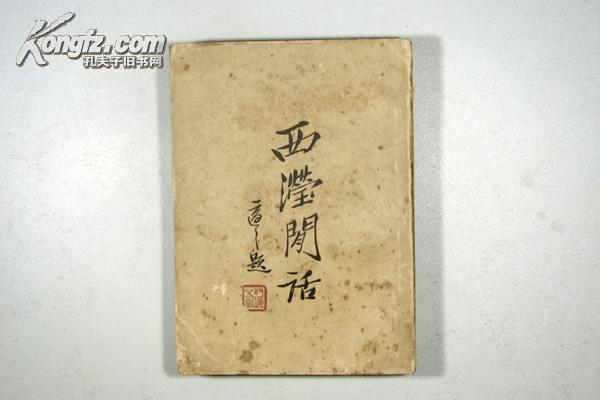 Kongfz.com
孔夫子旧书网
西瀅閒話
適之題